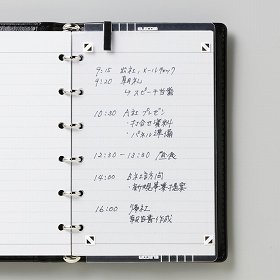 ELECOM
9:15 出社、メールチェック
9:20 朝礼
スピーチ当番
10:30 A社プレゼン
・打合せ資料
・パネル準備
12:30 - 13:30
14:00 B社訪問
・新規事業提案
16:00 帰社
報告書作成